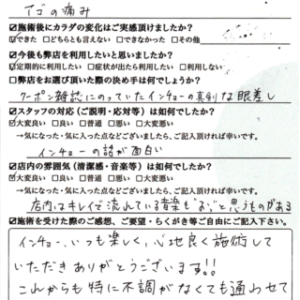 アゴの痛み
☑施術後にカラダの変化はご実感頂けましたか?
☑できた □どちらとも言えない □できなかった □その他
☑今後も弊店を利用したいと思いましたか?
☑定期的に利用したい □症状が出たら利用したい □利用しない
□弊店をお選び頂いた際の決め手は何でしょうか?
クーポン雑誌にのっていたインチョーの真剣な眼差し
☑スタッフの対応(ご説明・応対等)は如何でしたか?
☑大変良い □良い □普通 □悪い □大変悪い
→気になった・気に入った点などございましたら、ご記入頂ければ幸いです。
インチョーの話が面白い
☑店内の雰囲気(清潔感・音楽等)は如何でしたか?
☑大変良い □良い □普通 □悪い □大変悪い
→気になった・気に入った点などございましたら、ご記入頂ければ幸いです。
店内はキレイで流れている音楽も"お"と思うものがある
☑施術を受けた際のご感想、ご要望・らくがき等ご自由にご記入下さい。
インチョー、いつも楽しく、心地良く施術して
いただきありがとうございます!!
これからも特に不調がなくても通わせて